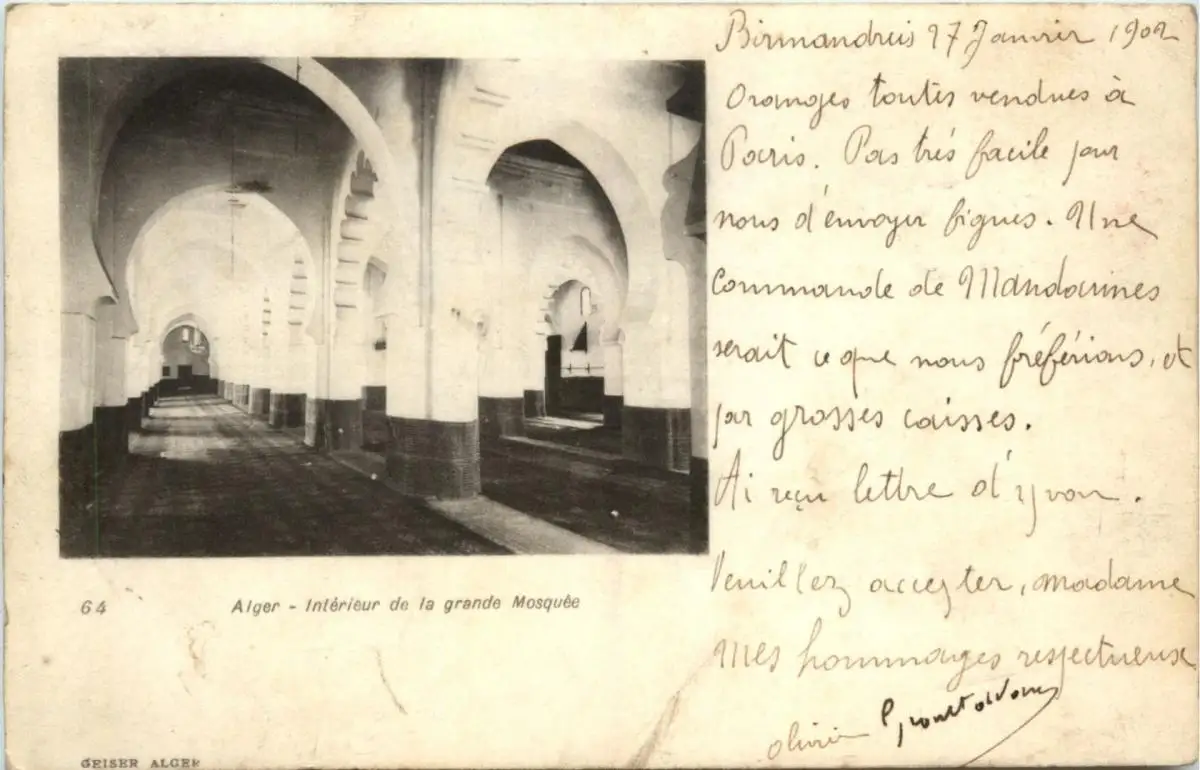 Birmandreis 27 Janvier 1902
Oranges toutes vendues à
Paris. Pas très facile pour
nous d'envoyer figues. Une
commande de Mandarines
serait ce que nous préférions, et
par grosses caisses.
Ai reçu lettre d'yvon.
Veuillez accepter, madame
mes hommages respectueux
olivier
64 Alger - Intérieur de la grande Mosquée
GEISER ALGER